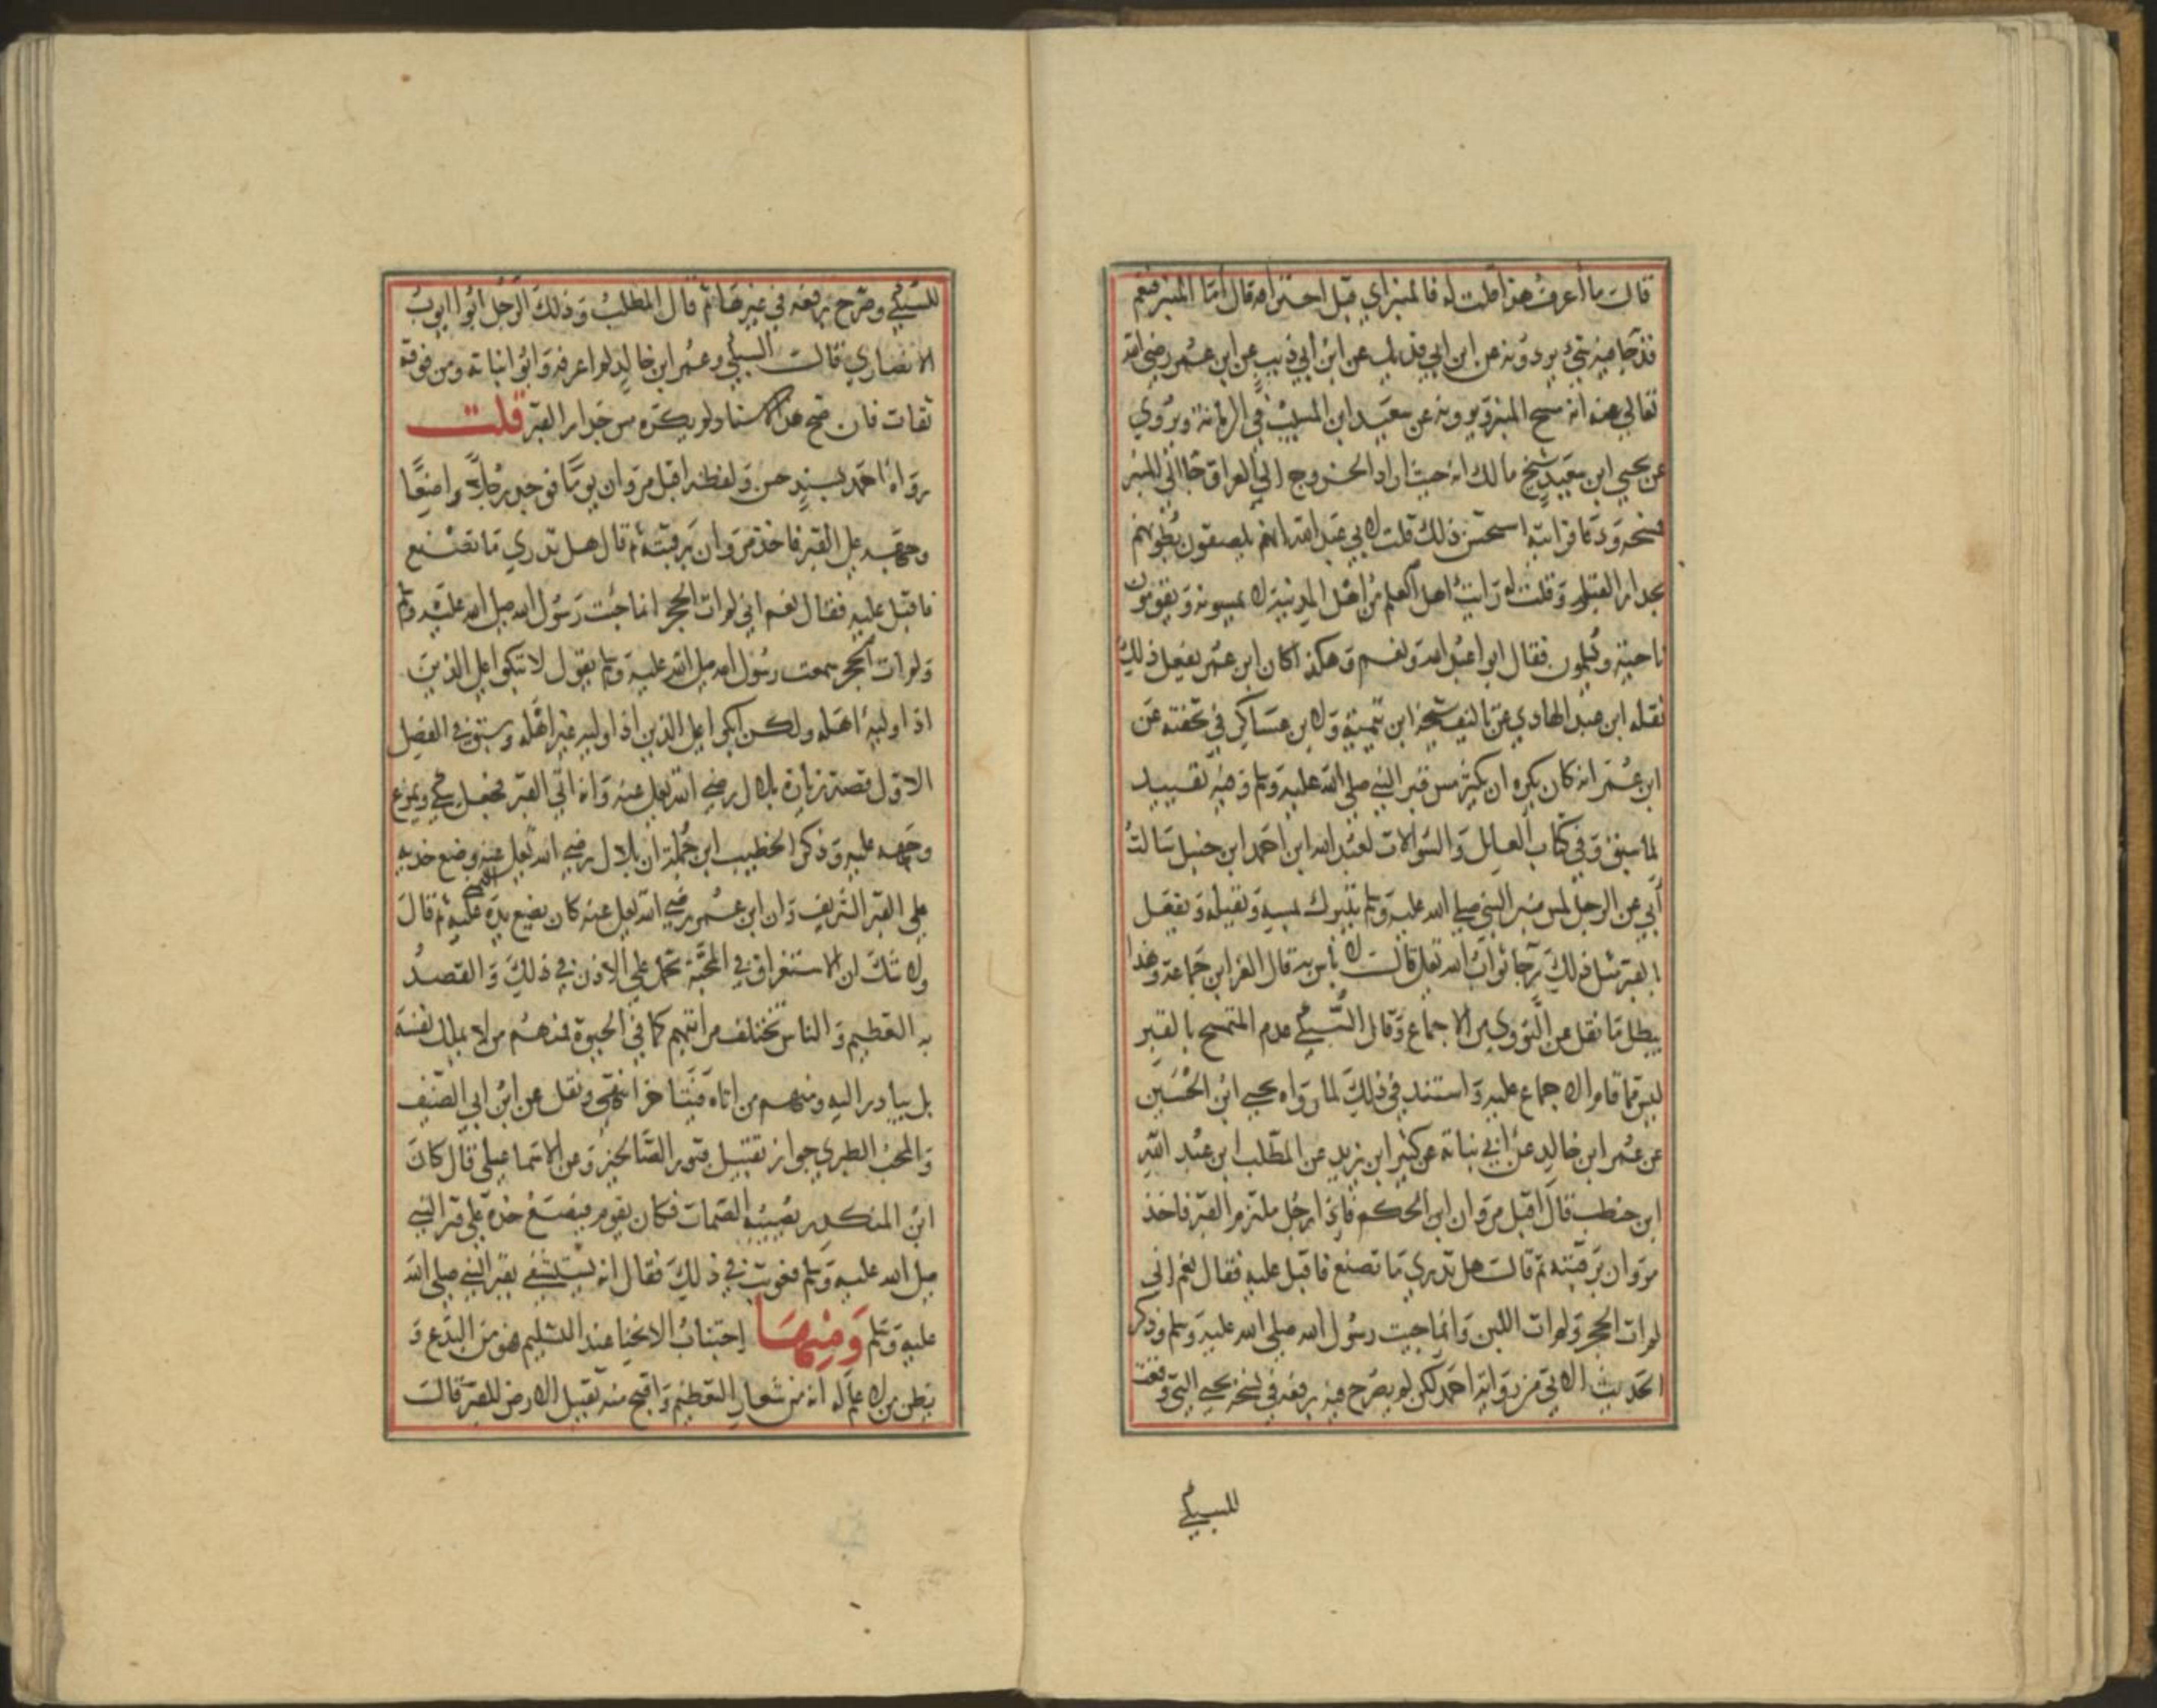 قالت ما اعرف هذا قلت له فالمنبر اي قبل احتراقه قال اما المنبر فنعم
قد جا فيه شيء يروونه عن ابن ابي فديك عن ابن ابي ذيب عن ابن عمر رضي الله
تعالي عنه انه مسح المنبر ويروونه عن سعيد ابن المسيب في الرمانة ويروي
عن يحيي ابن سعيد شيخ مالك انه حيث اراد الخروج الي العراق جا الي المنبر
فمسحه ودعا فرايته استحسن ذلك قلت لابي عبد الله انهم يلصقون بطونهم
بجدار القبر وقلت له رايت اهل العلم من اهل المدينة لا يمسونه ويقومون
ناحية ويسلمون فقال ابوا عبد الله ونعم وهكذا كان ابن عمر يفعل ذلك
نقله ابن عبد الهادي عن تاليف شيخه ابن تيمية ولابن عساكر في تحفته عن
ابن عمر انه كان يكره ان يكثر مس قبر النبي صلي الله عليه وسلم وفيه تقييد
لما سبق وفي كتاب العلل والسوالات لعبد الله ابن احمد ابن حنبل سالت
أبي عن الرجل لمس منبر النبي صلي الله عليه وسلم يتبرك بمسه وتقبيله ويفعل
بالقبر مثل ذلك رجا ثواب الله تعلي قالت لا باس به قال العز ابن جماعة وهذا
يبطل ما نقل عن النووي من الاجماع وقال السبكي عدم التمسح بالقبر
ليس مما قام الاجماع عليه واستند في ذلك لما رواه يحيي ابن الحسين
عن عمر ابن خالد عن ابي نباتة عن كثير ابن يزيد عن المطلب ابن عبد الله
ابن حنطب قال اقبل مروان ابن الحكم فاذا رجل ملتزم القبر فاخذ
مروان برقبته ثم قالت هل تدري ما تصنع فاقبل عليه فقال نعم اني
لم ات الحجر ولم ات اللبن وانما جيت رسول الله صلي الله عليه وسلم وذكر
الحديث الاتي من رواية احمد لكن لم يصرح فيه برفعه في نسخة يحيي التي وقعت
للسبكي
للسبكي وصرح برفعه في غيرها ثم قال المطلب وذلك الرجل ابوا ايوب
الانصاري قالت السبكي وعمر ابن خالد لم اعرفه وابو انباتة ومن فوقه
ثقات فان صح هذا الاسناد لم يكره مس جدار القبر قلت
رواه احمد بسند حسن ولفظه اقبل مروان يوما فوجد رجلا واضعا
وجهه علي القبر فاخذ مروان برقبته ثم قال هل تدري ما تصنع
فاقبل عليه فقال نعم اني لم ات الحجر انما جئت رسول الله صلي الله عليه وسلم
ولم ات الحجر سمعت رسول الله صلي الله عليه وسلم يقول لا تبكوا علي الدين
اذا وليه اهله ولكن ابكوا علي الدين اذا وليه غير اهله وسبق في الفصل
الاول قصة زيارة بلال رضي الله تعلي عنه وانه اتي القبر فجعل يبكي ويمرغ
وجهه عليه وذكر الخطيب ابن جملة ان بلال رضي الله تعلي عنه وضع خديه
علي القبر الشريف وان ابن عمر رضي الله تعلي عنه كان يضع يده عليه ثم قال
ولا شك ان الاستغراق في المحبة تحمل علي الاذن في ذلك والقصد
به التعظيم والناس تختلف مراتبهم كما في الحيوة فمنهم من لا يملك نفسه
بل يبادر اليه ومنهم من اناه فيتاخر انتهي ونقل عن ابن ابي الصيف
والمحب الطبري جواز تقبيل قبور الصالحين وعن الاسماعيلي قال كان
ابن المنكدر يصيبه الصمات فكان يقوم فيضع خده علي قبر النبي
صلي الله عليه وسلم فعوتب في ذلك فقال انه يستشفي بقبر النبي صلي الله
عليه وسلم ومنها اجتناب الانحنا عند التسليم فهو من البدع و
يظن من لا علم له انه من شعار التعظيم واقبح منه تقبيل الارض للقبر قالت